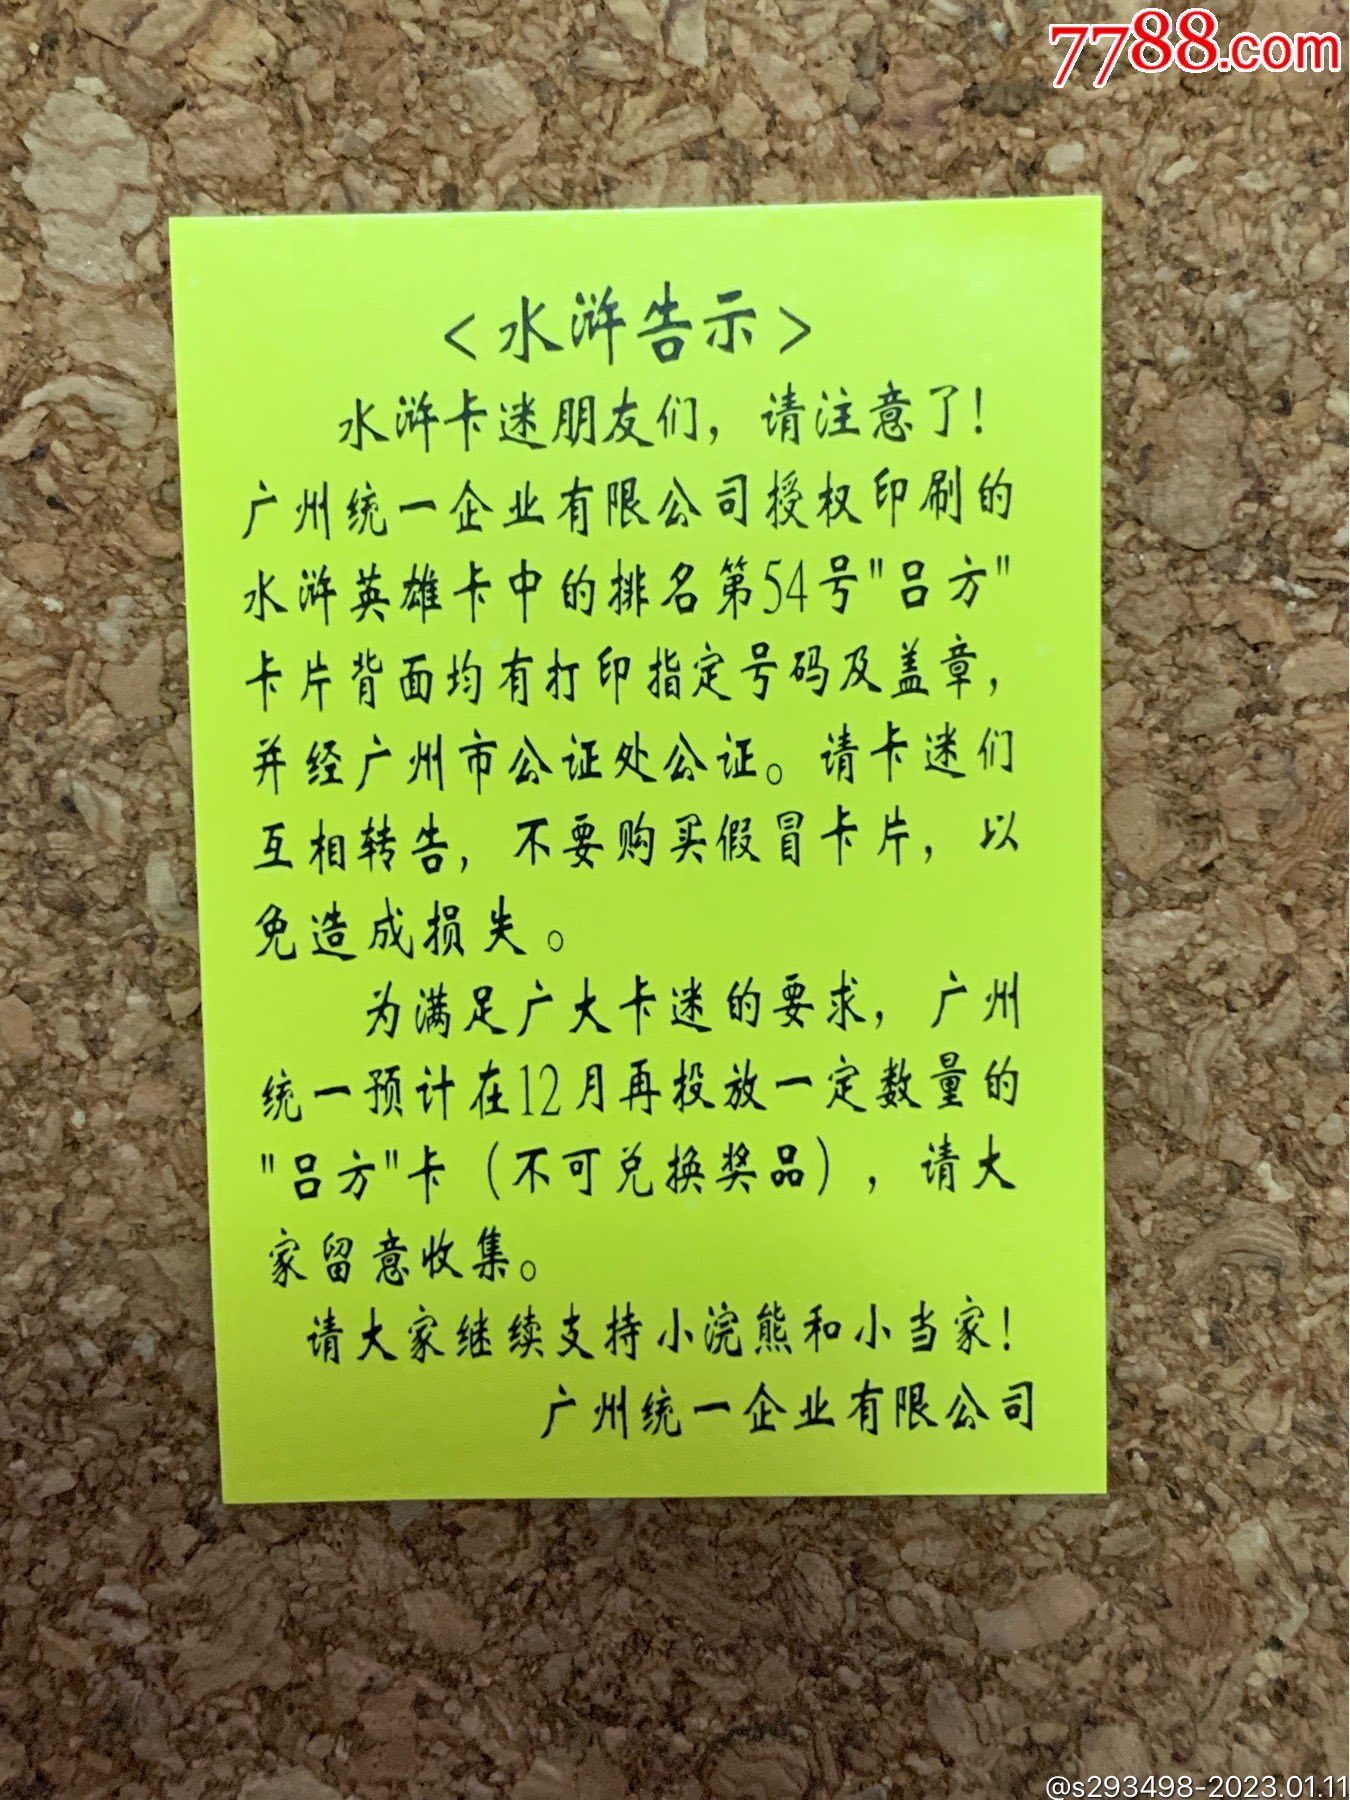 7788.com
<水浒告示>
水浒卡迷朋友们，请注意了!
广州统一企业有限公司授权印刷的
水浒英雄卡中的排名第54号"吕方"
卡片背面均有打印指定号码及盖章，
并经广州市公证处公证。请卡迷们
互相转告，不要购买假冒卡片，以
免造成损失。
为满足广大卡迷的要求，广州
统一预计在12月再投放一定数量的
"吕方"卡（不可兑换奖品），请大
家留意收集。
请大家继续支持小浣熊和小当家!
广州统一企业有限公司
@s293498-2023.01.11